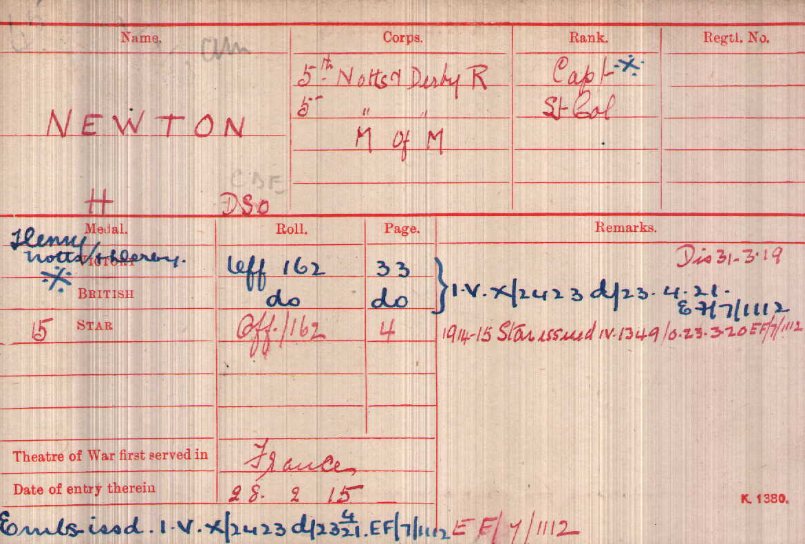 Name. Corps. Rank. Regtl. No.
5th Notts & Derby R Capt ※
5 " " Lt Col
NEWTON M of M
H DSO CBE
Medal. Roll. Page. Remarks.
Henry
Notts & Derby. Dis 31-3-19
※ VICTORY Off 162 33
BRITISH do do } I.V. X/2423 d/23.4.21.
EF/7/1112
15 STAR Off./162 4 1914-15 Star issued IV.1349/0.23.3.20 EF/7/1112
Theatre of War first served in France
Date of entry therein 28. 2 15
K. 1380.
Embs issd. I.V. X/2423 d/23 4 21. EF/7/1112 EF/7/1112